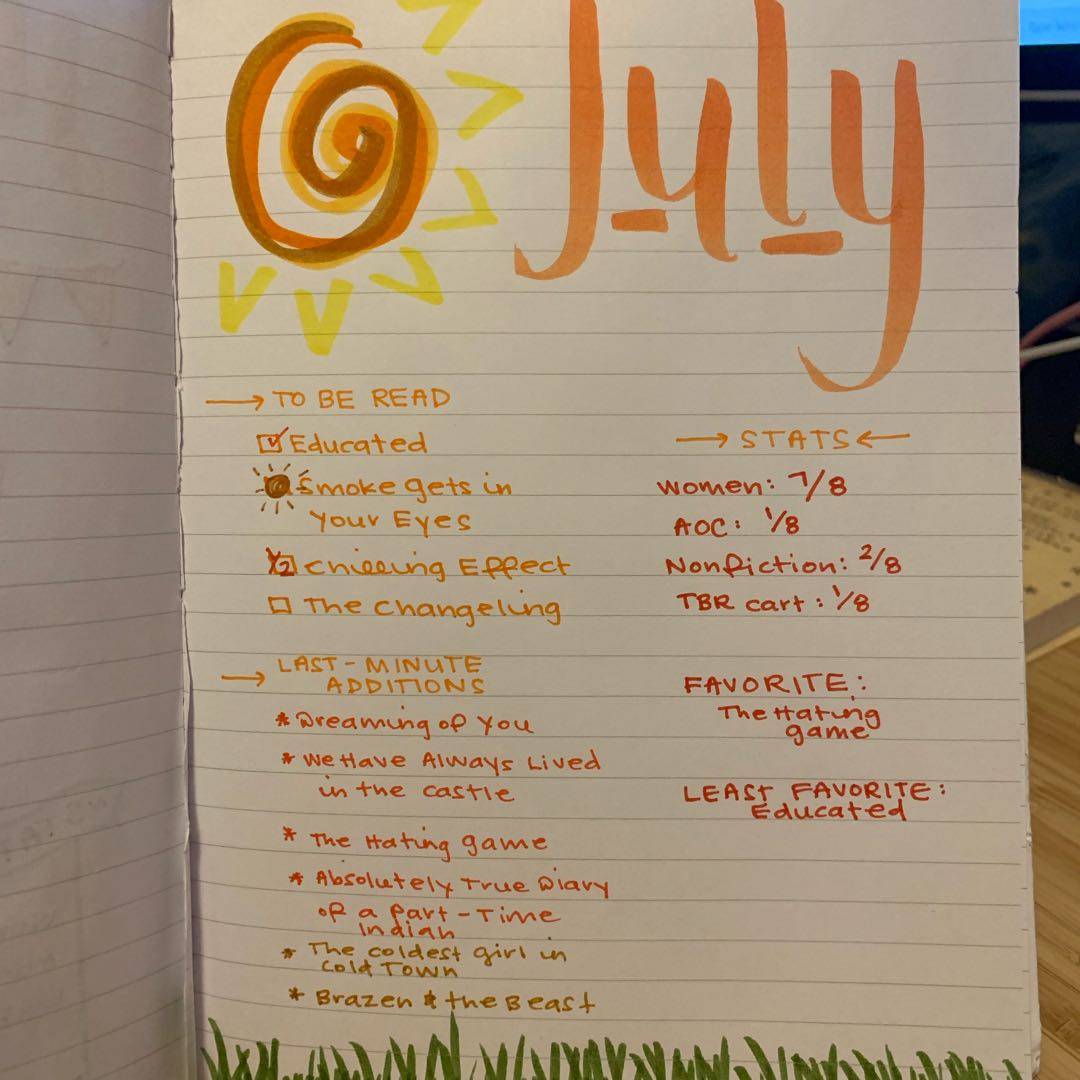 July
→ TO BE READ
Educated
Smoke gets in
Your Eyes
1/2 Chilling Effect
The Changeling
→ LAST-MINUTE
ADDITIONS
* Dreaming of You
* We Have Always Lived
in the castle
* The Hating game
* Absolutely True Diary
of a Part-Time
Indian
* The coldest girl in
Cold Town
* Brazen & the Beast
→ STATS ←
Women: 7/8
AOC: 1/8
Nonfiction: 2/8
TBR cart: 1/8
FAVORITE:
The Hating
game
LEAST FAVORITE:
Educated